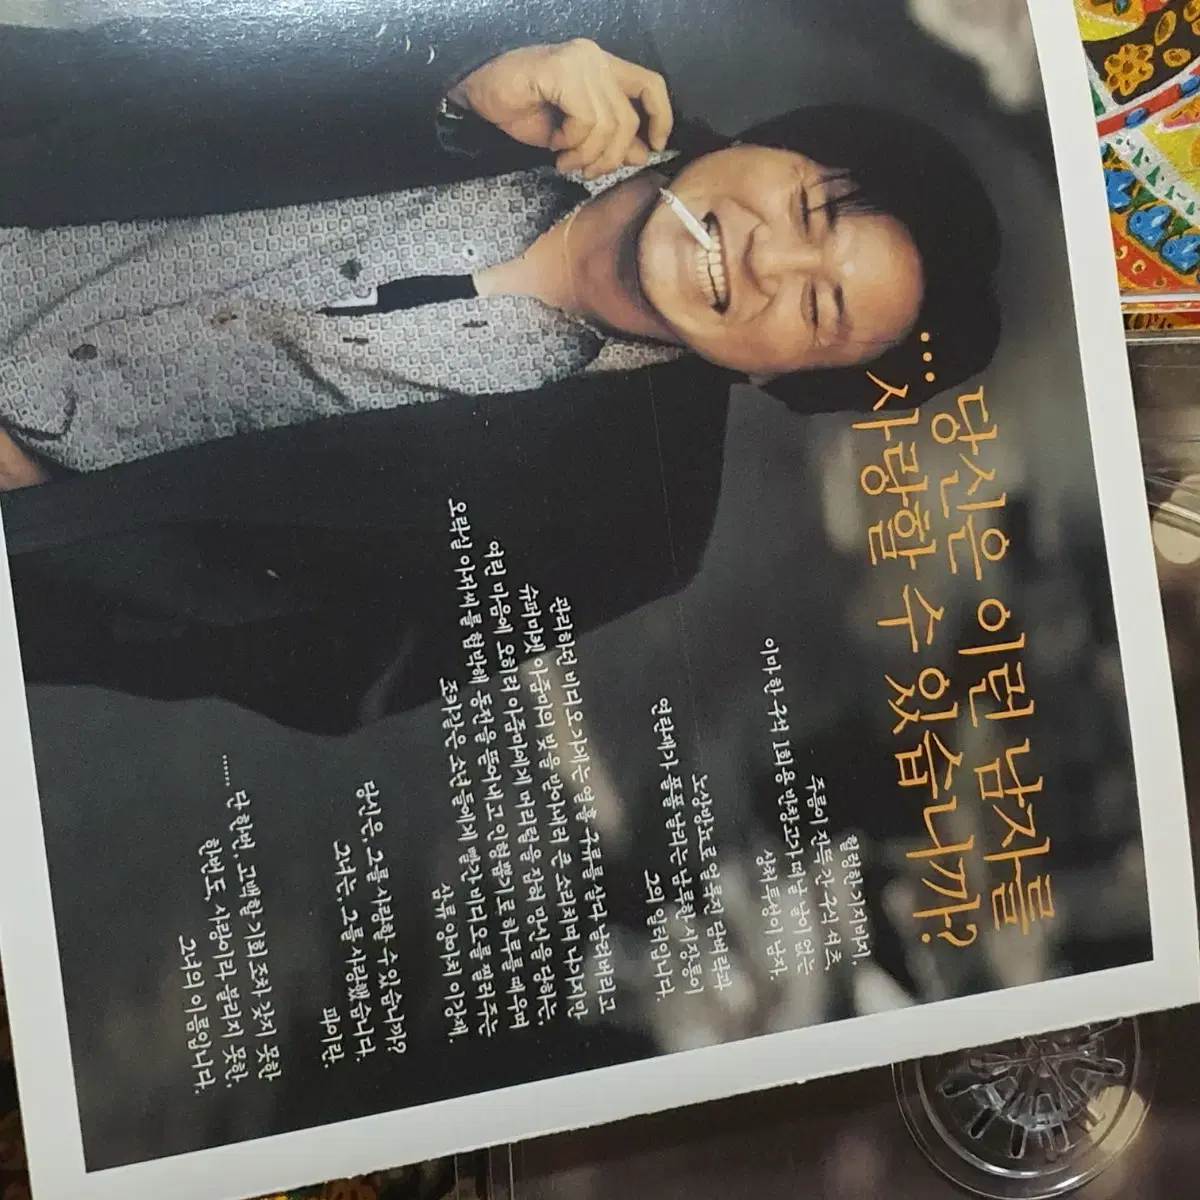 당신은 이런 남자를
...사랑할 수 있습니까?
헐렁한 기지바지,
주름이 잔뜩 간 구식 셔츠,
이마 한 구석 1회용 반창고가 떠날 날이 없는
상처투성이 남자.
노상방뇨로 얼룩진 담벼락과
연탄재가 풀풀 날리는 남루한 시장통이
그의 일터입니다.
관리하던 비디오가게는 열흘 구류를 살다 날려버리고
슈퍼마켓 아줌마의 빚을 받아내러 큰 소리치며 나가지만
여린 마음에 오히려 아줌마에게 머리털을 잡혀 망신을 당하는,
오락실 아저씨를 협박해 동전을 뜯어내고 인형뽑기로 하루를 때우며
조카같은 소년들에게 빨간 비디오를 팔러 주는
삼류 양아치 이강재.
당신은, 그를 사랑할 수 있습니까?
그녀는, 그를 사랑했습니다.
파이란.
...... 단 한번, 고백할 기회조차 갖지 못한
한번도, 사랑이라 불리지 못한,
그녀의 이름입니다.